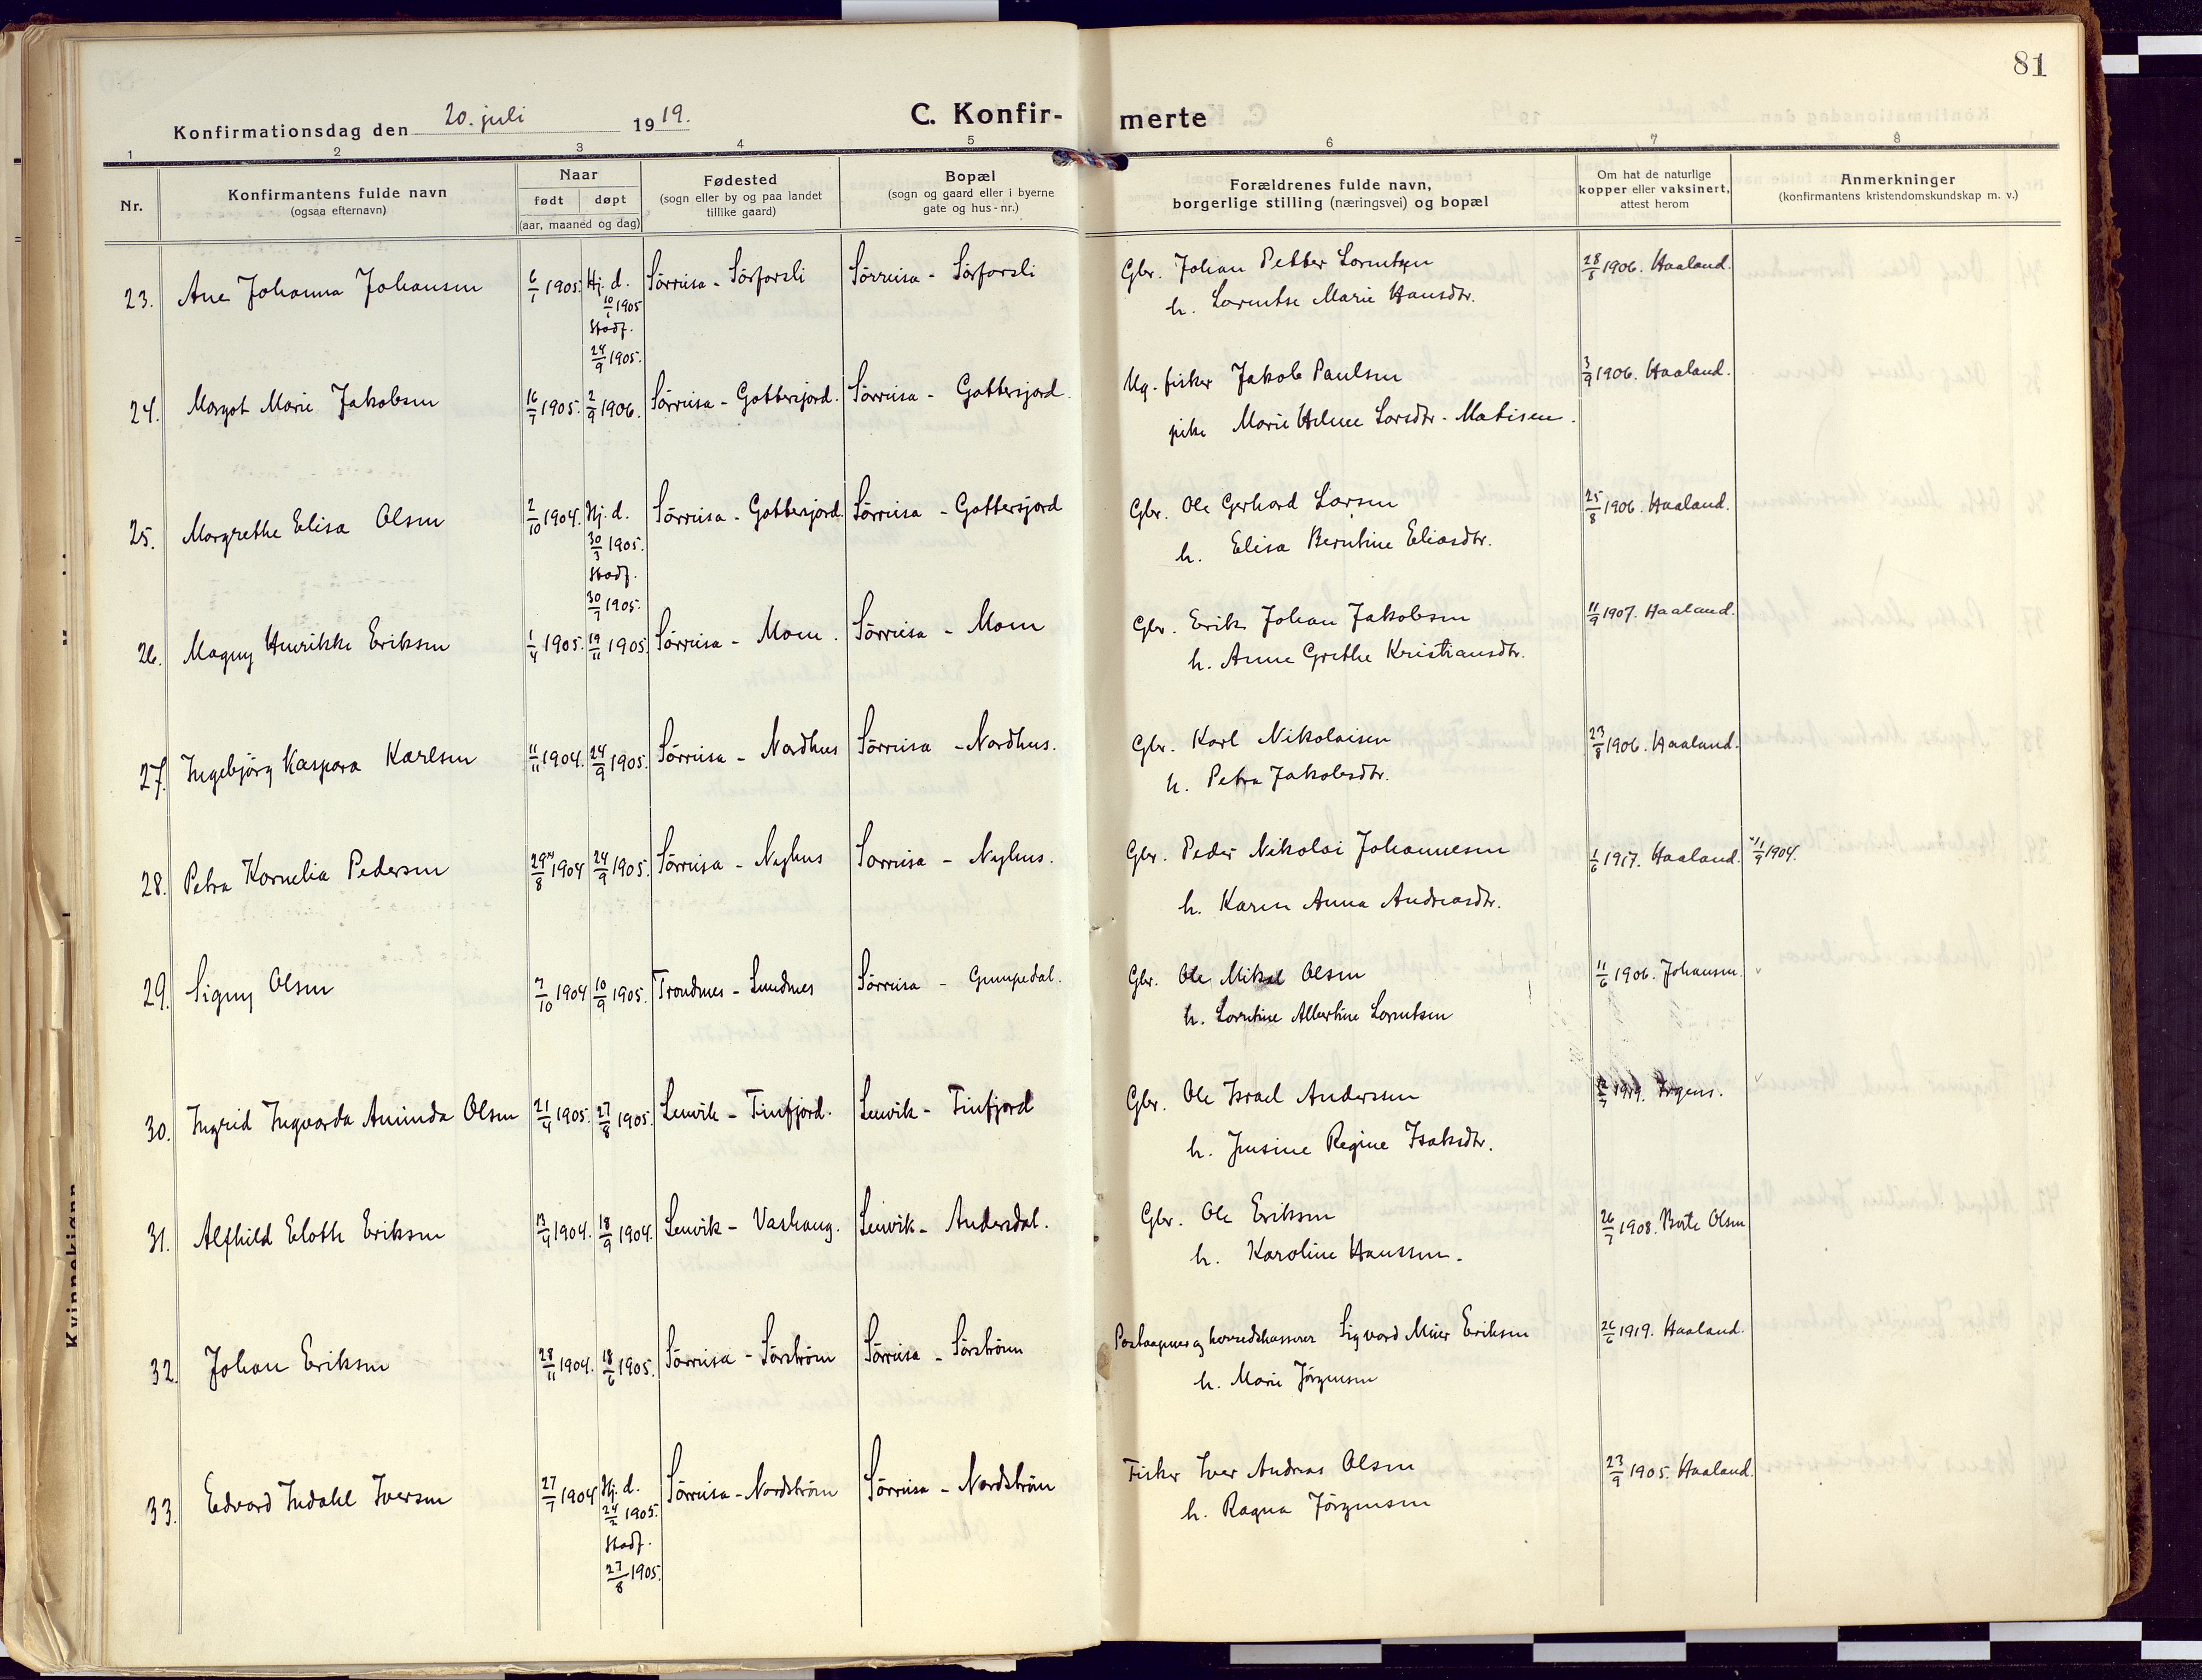 81
Konfirmationsdag den 20. juli 1919.
C. Konfirmerte
1 2 3 4 5 6 7 8
Nr.
Konfirmantens fulde navn
(ogsaa efternavn)
Naar
født døpt
(aar, maaned og dag)
Fødested
(sogn eller by og paa landet
tillike gaard)
Bopæl
(sogn og gaard eller i byerne
gate og hus-nr.)
Forældrenes fulde navn,
borgerlige stilling (næringsvei) og bopæl
Om hat de naturlige
kopper eller vaksinert,
attest herom
Anmerkninger
(konfirmantens kristendomskundskap m. v.)
23. Ane Johanna Johansen 6/1 1905. Hj. d. Sörreisa - Sörforsli Sörreisa - Sörforsli Gbr. Johan Petter Lorntzen 28/8 1906. Haaland.
10/1 1905 h. Lorentse Marie Hansdtr.
Stadf.
24/9 1905.
24. Margot Marie Jakobsen 16/7 1905. 2/9 1906. Sörreisa - Gottesjord. Sörreisa - Gottesjord. Ug. fisker Jakob Paulsen 3/9 1906. Haaland.
pike Marie Helene Larsdtr. Matisen.
25. Margrethe Elisa Olsen 2/10 1904. Hj. d. Sörreisa - Gottesjord Sörreisa - Gottesjord Gbr. Ole Gerhard Larsen 25/8 1906. Haaland.
30/3 1905. h. Elisa Berntine Eliasdtr.
Stadf.
30/9 1905.
26. Magny Henrikke Eriksen 1/4 1905. 19/11 1905. Sörreisa - Moen. Sörreisa - Moen Gbr. Erik Johan Jakobsen 11/9 1907. Haaland.
h. Anne Grethe Kristiansdtr.
27. Ingebjörg Kaspara Karlsen 11/11 1904. 24/9 1905. Sörreisa - Nordhus Sörreisa - Nordhus. Gbr. Karl Nikolaisen 23/8 1906. Haaland.
h. Petra Jakobsdtr.
28. Petra Kornelia Pedersen 29/8 1904 24/9 1905. Sörreisa - Nyhus Sörreisa - Nyhus. Gbr. Peder Nikolai Johannesen 1/6 1917. Haaland. 1/9 1904.
h. Karen Anna Andreasdtr.
29. Signy Olsen 7/10 1904 10/9 1905. Trondenes - Sundnes Sörreisa - Gumpedal. Gbr. Ole Mikal Olsen 11/6 1906. Johansen.
h. Lorntine Albertine Lorntsen
30. Ingrid Ingvarda Aminda Olsen 21/4 1905. 27/8 1905. Lenvik - Finfjord. Lenvik - Finfjord Gbr. Ole Israel Anderssen 1919. Irgens.
h. Jensine Regine Isaksdtr.
31. Alfhild Elotte Eriksen 13/4 1904. 18/9 1904. Lenvik - Vashaug. Lenvik - Andersdal. Gbr. Ole Eriksen 26/7 1908. Berte Olsen
h. Karoline Hanssen.
32. Johan Eriksen 28/11 1904. 18/6 1905. Sörreisa - Sörström Sörreisa - Sörström Postaapner og herredskasserer Sigvard Meier Eriksen 26/6 1919. Haaland.
h. Marie Jörgensen
33. Edvard Indahl Iversen 27/7 1904 Hj. d. Sörreisa - Nordström Sörreisa - Nordström Fisker Iver Andreas Olsen 23/9 1905. Haaland.
24/2 1905. h. Ragna Jörgensen
Stadf.
27/8 1905.